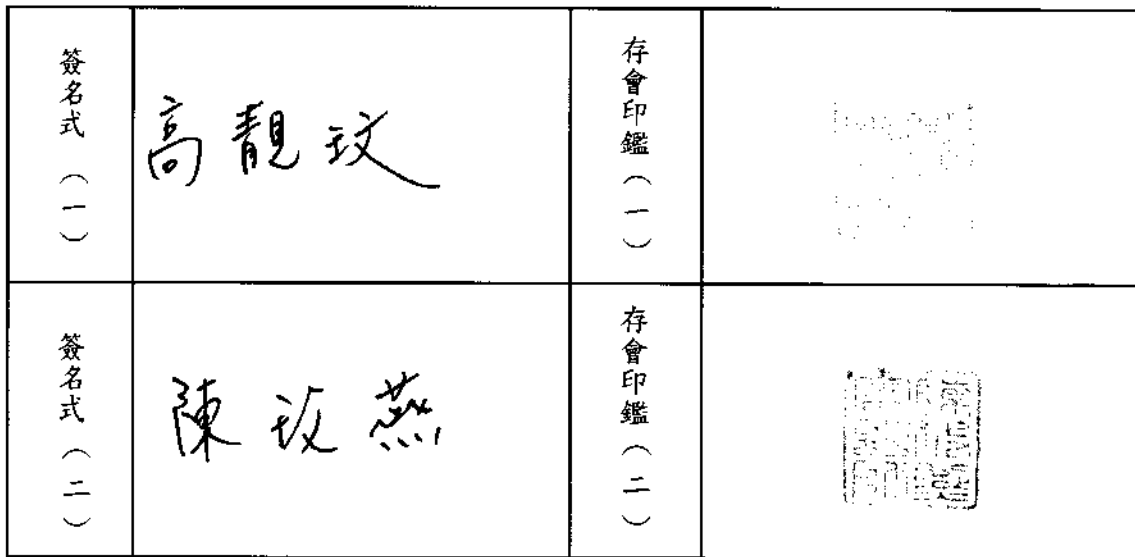 簽名式（一）
高靚玟
存會印鑑（一）
簽名式（二）
陳玫燕
存會印鑑（二）